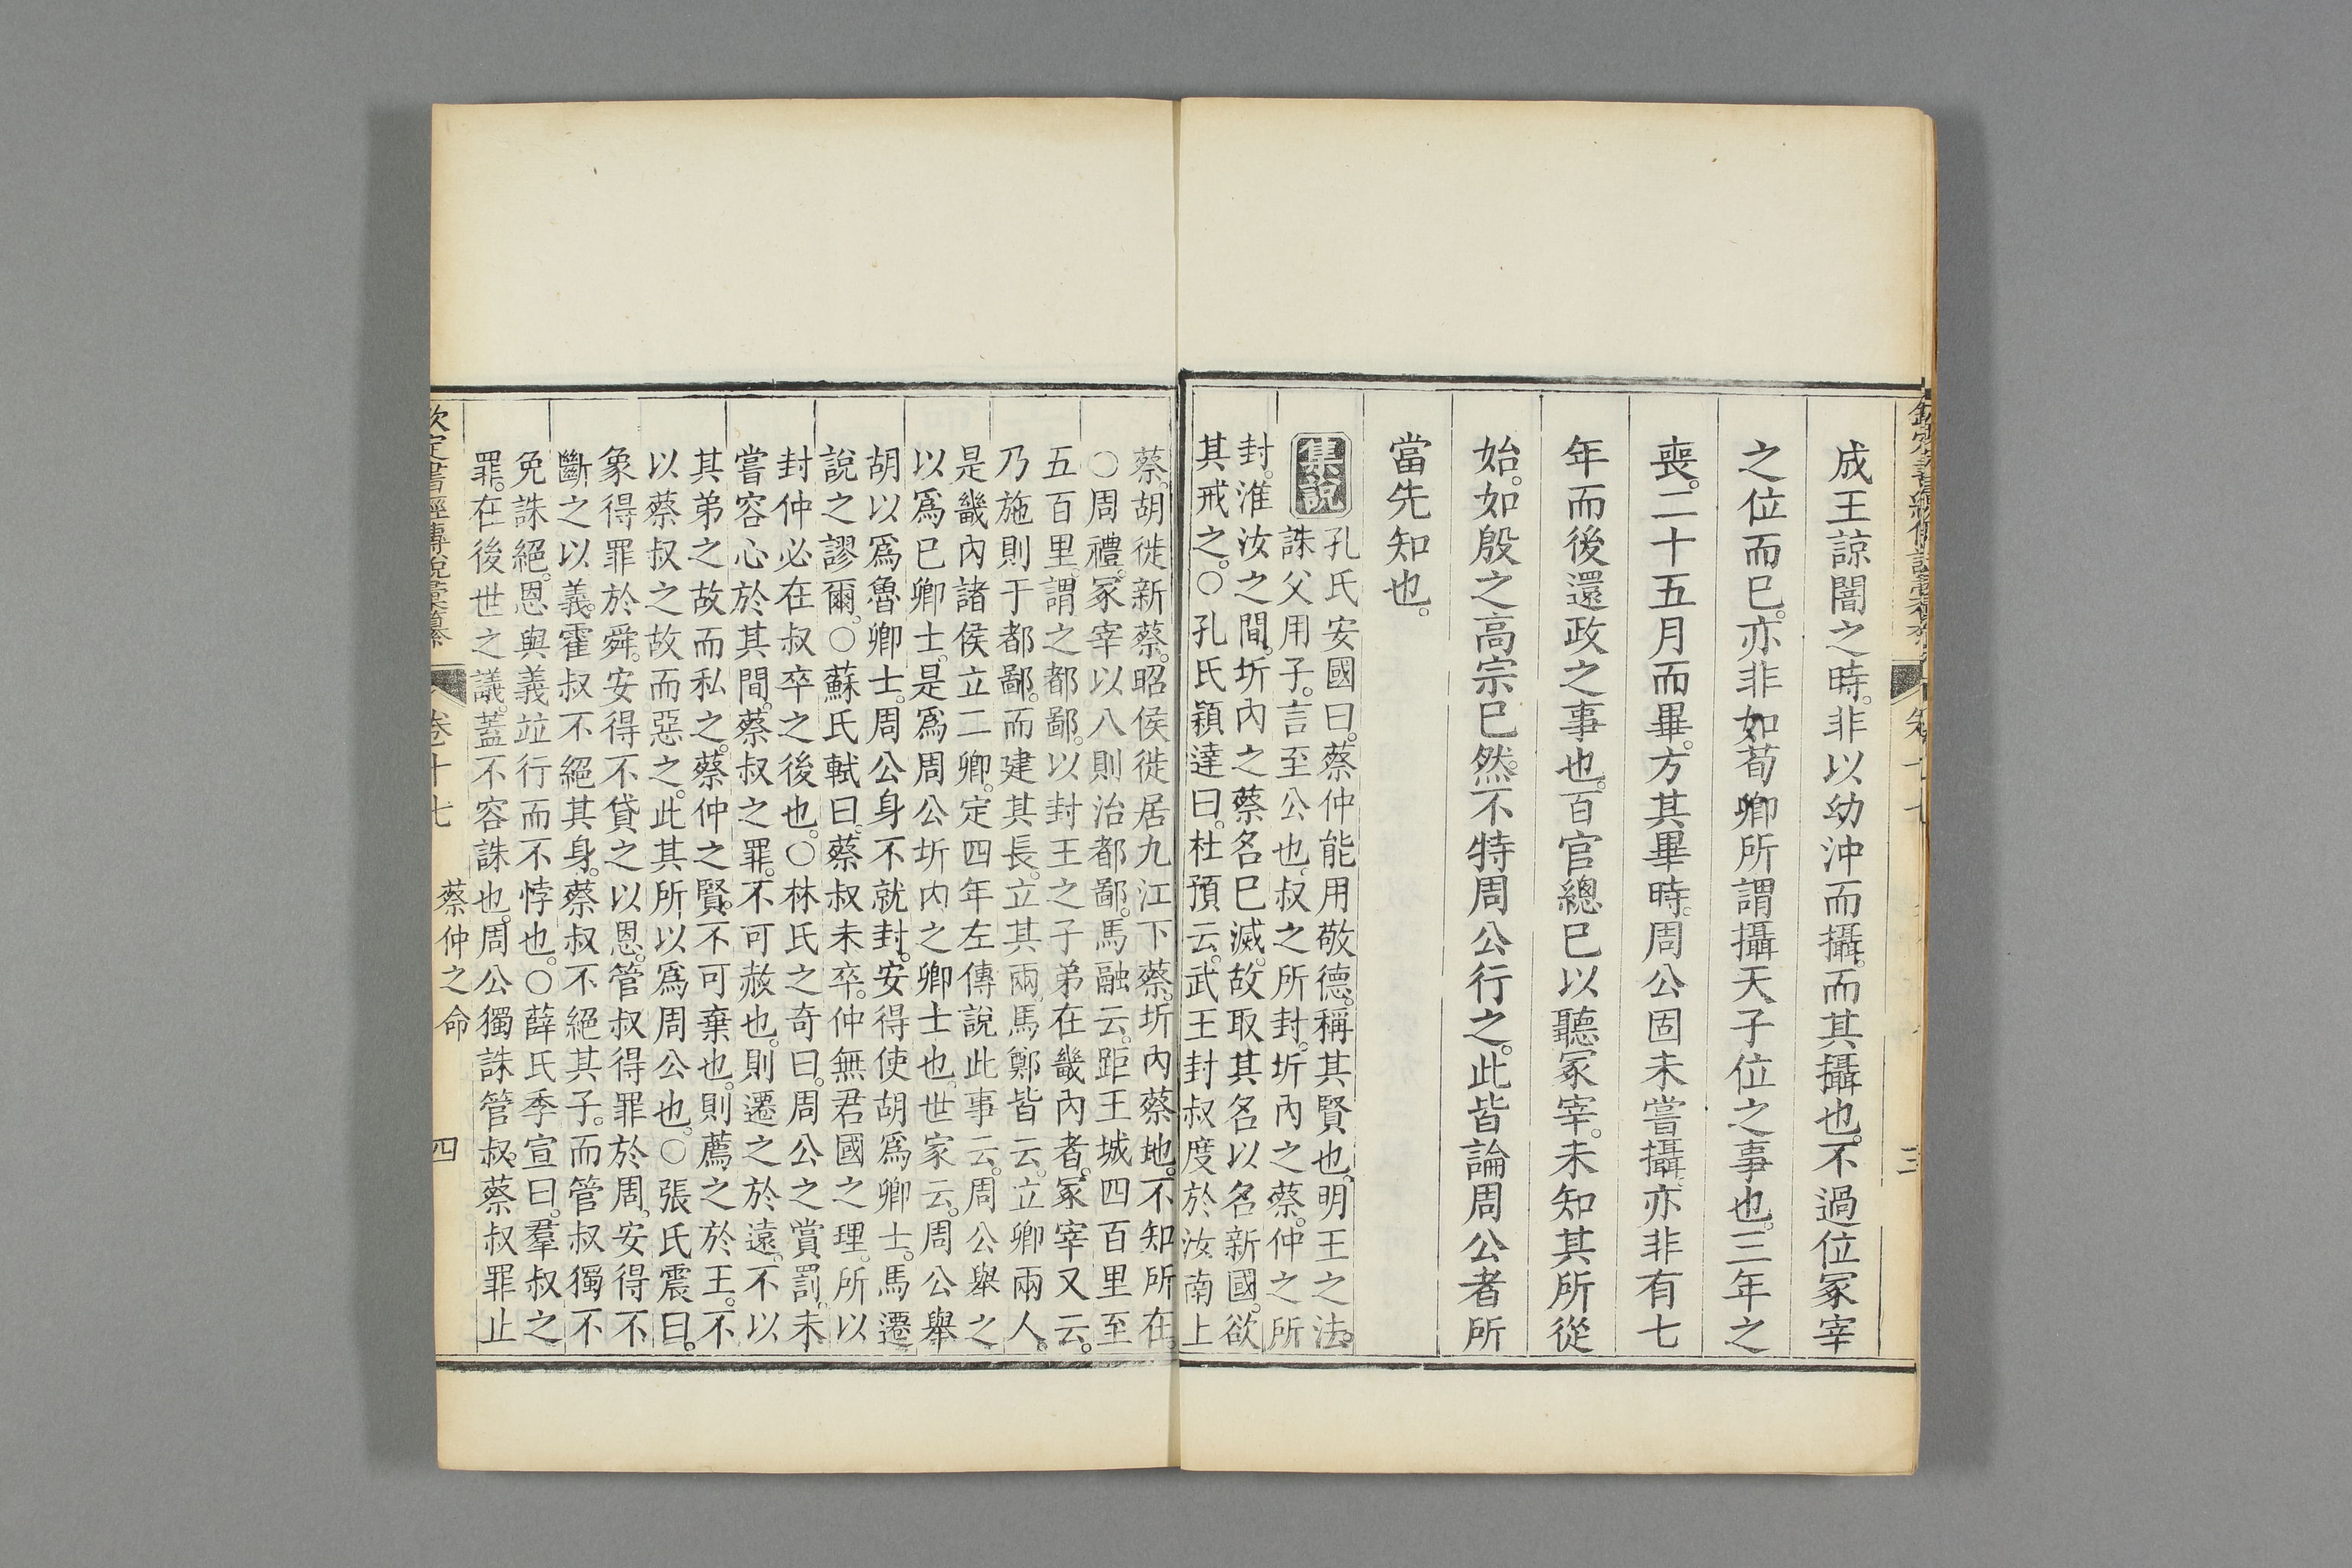 成王諒闇之時。非以幼沖而攝。而其攝也。不過位冢宰
之位而已。亦非如荀卿所謂攝天子位之事也。三年之
喪。二十五月而畢。方其畢時。周公固未嘗攝。亦非有七
年而後還政之事也。百官總己以聽冢宰。未知其所從
始。如殷之高宗已然。不特周公行之。此皆論周公者所
當先知也。
集說
孔氏安國曰。蔡仲能用敬德。稱其賢也。明王之法。
誅父用子。言至公也。叔之所封。圻內之蔡。仲之所
封。淮汝之間。圻內之蔡名已滅。故取其名以名新國。欲
其戒之。○孔氏穎達曰。杜預云。武王封叔度於汝南上
蔡。胡徙新蔡。昭侯徙居九江下蔡。圻內蔡地。不知所在。
○周禮。冢宰以八則治都鄙。馬融云。距王城四百里至
五百里。謂之都鄙。以封王之子弟在畿內者。冢宰又云。
乃施則于都鄙。而建其長。立其兩。馬鄭皆云。立卿兩人。
是畿內諸侯立二卿。定四年左傳說此事云。周公舉之
以爲己卿士。是爲周公圻內之卿士也。世家云。周公舉
胡以爲魯卿士。周公身不就封。安得使胡爲卿士。馬遷
說之謬爾。○蘇氏軾曰。蔡叔未卒。仲無君國之理。所以
封仲必在叔卒之後也。○林氏之奇曰。周公之賞罰。未
嘗容心於其間。蔡叔之罪。不可赦也。則遷之於遠。不以
其弟之故而私之。蔡仲之賢。不可棄也。則薦之於王。不
以蔡叔之故而惡之。此其所以爲周公也。○張氏震曰。
象得罪於舜。安得不貸之以恩。管叔得罪於周。安得不
斷之以義。霍叔不絕其身。蔡叔不絕其子。而管叔獨不
免誅絕。恩與義竝行而不悖也。○薛氏季宣曰。羣叔之
罪。在後世之議。蓋不容誅也。周公獨誅管叔。蔡叔罪止
欽定書經傳說彙纂 卷十七 蔡仲之命 四